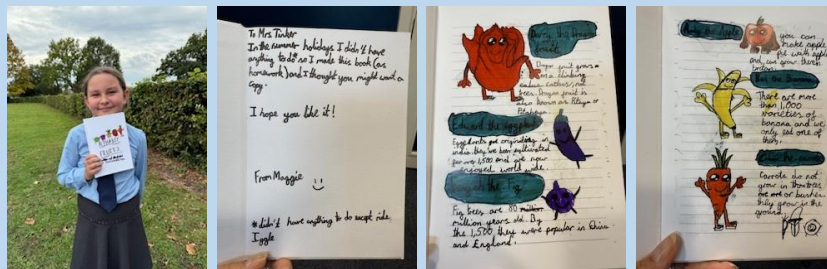 To Mrs. Tinker
In the summer holidays I didn't have
anything to do* so I made this book (as
homework) and I thought you might want a
copy.
I hope you like it!
From Maggie
*didn't have anything to do except ride
Iggle
the dragon
fruit
Dragon fruit grows
on a climbing
cactus, not
trees. Dragon fruit is
also known as Pitaya or
Pitahaya.
Edward the eggplant
Eggplants are originally in
India. they've been cultivated
for over 1,500 and are now
enjoyed world wide.
the Fig
Fig trees are 80 million
million years old. By
the 1,500 they were popular in China
and England.
the Apple
you can
make apple
with apple
and can grow
the Banana
There are more
than 1,000
varieties of
banana and we
only eat one of
them.
the carrot
Carrots do not
grow in
or bushes
they grow in the
ground.